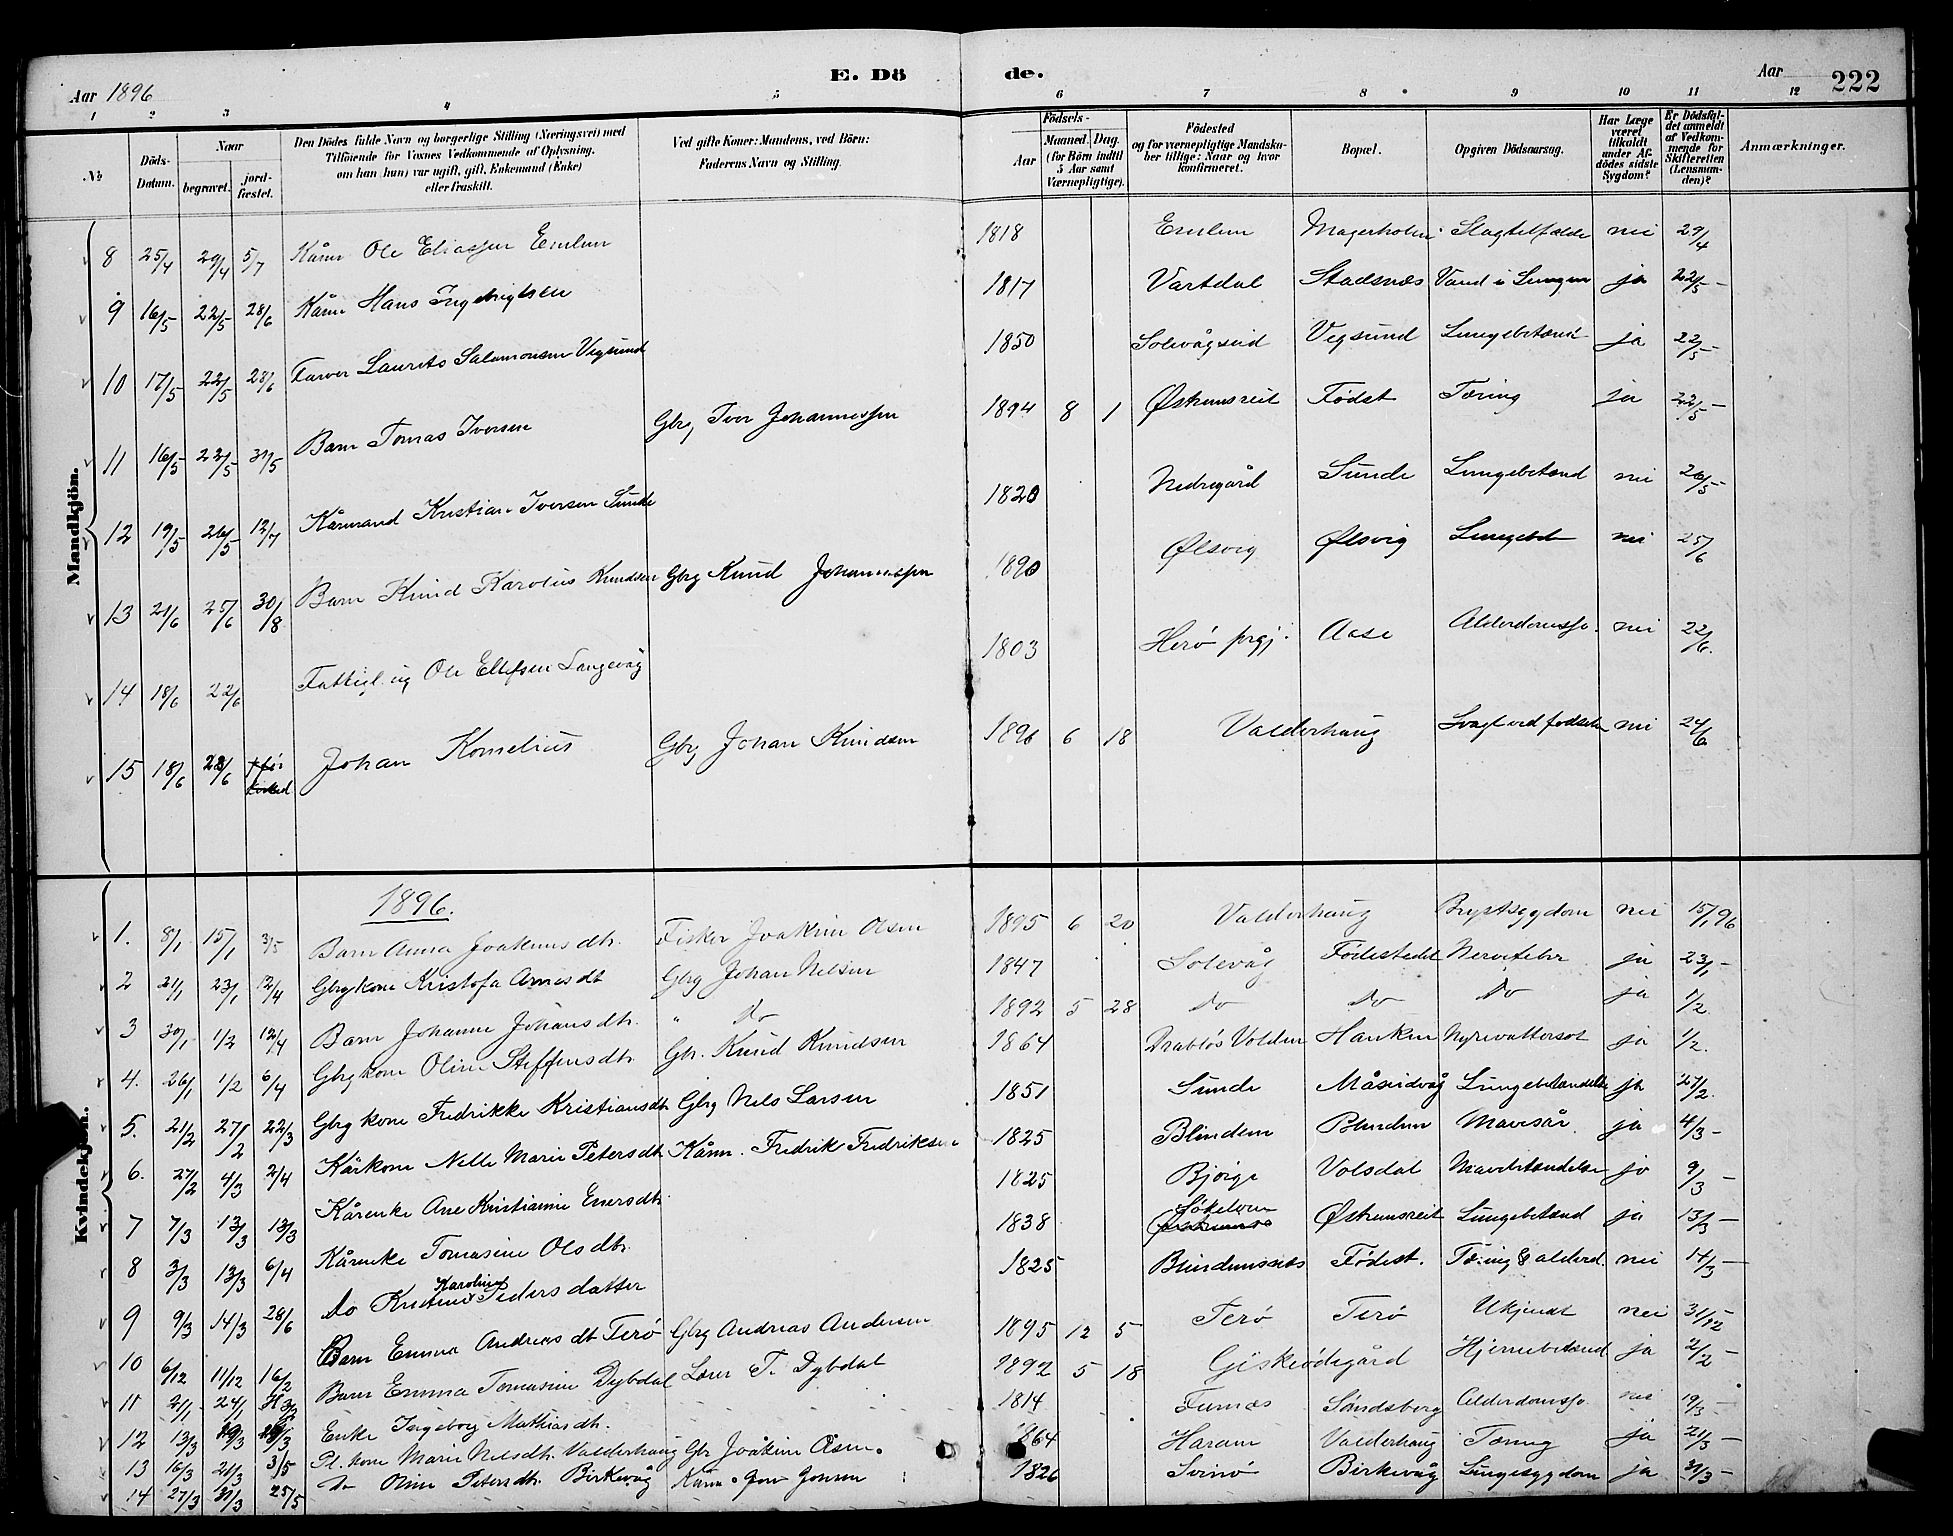 Aar 1896 E. Dö de. Aar 222
1 2 3 4 5 6 7 8 9 10 11 12
№ Döds-Datum. Naar begravet. jordfæstet. Den Dödes fulde Navn og borgerlige Stilling (Næringsvei) med Tilföiende for Voxnes Vedkommende af Oplysning, om han (hun) var ugift, gift, Enkemand (Enke) eller fraskilt. Ved gifte Koner: Mandens, ved Börn: Faderens Navn og Stilling. Födsels- Aar Maaned. Dag. (for Börn indtil 5 Aar samt Værnepligtige). Födested og for værnepligtige Mandskaber tillige: Naar og hvor konfirmeret. Bopæl. Opgiven Dödsaarsag. Har Læge været tilkaldt under Afdödes sidste Sygdom? Er Dödsfaldet anmeldt af Vedkommende for Skifteretten (Lensmanden)? Anmærkninger.
Mandkjön.
8 25/4 29/4 5/7 Kårm Ole Eliassen Emlem 1818 Emlem Magerholm Slagtilfælde nei 29/4
9 16/5 22/5 28/6 Kårm Hans Ingebrigtsen 1817 Vartdal Stadsnæs Vand i Lungen ja 22/5 -
10 17/5 22/5 28/6 Farver Laurits Salamonsen Vegsund 1850 Solevågseid Vegsund Lungebetænd ja 22/5 -
11 16/5 22/5 31/5 Barn Tomas Iversen Gbrg Iver Johannessen 1894 8 1 Østremsreit Födest Tæring ja 22/5 -
12 19/5 26/5 12/7 Kårmand Kristian Iversen Sunde 1820 Nedregård Sunde Lungebetænd nei 26/5 -
13 21/6 25/6 30/8 Barn Knud Karolus Knudsen Gbrg Knud Johannessen 1890 Ølsvig Ølsvig Lungebet nei 25/6
14 18/6 22/6 Fattigl. ug Ole Ellefsen Langevåg 1803 Herö prgj. Aase Alderdomssv. nei 22/6.
15 18/6 28/6 Johan Kornelius Gbrg Johan Knudsen 1896 6 18 Valderhaug Svagt ved fødselen nei 24/6
Kvindekjön.
1896.
1. 8/1 15/1 3/5 Barn Anna Joakimsdtr. Fisker Joakim Olsen 1895 6 20 Valderhaug Brystsygdom nei 15/1 96
2 21/1 23/1 12/4 Gbrgkone Kristofa Arnesdt Gbrg Johan Nelsen 1847 Solevåg Födestedet Nervefeber ja 23/1 -
3 30/1 1/2 12/4 Barn Johanne Johansdtr. " Do 1892 5 28 Do Do Do ja 1/2.
4. 26/1 1/2 6/4 Gbrgkone Oline Steffensdtr. Gbr. Knud Knudsen 1864 Drabløs Volden Hanken Nyrevattersot ja 1/2.
5. 21/2 27/2 22/3 Gbrgkone Fredrikke Kristiansdt Gbrg Nels Larsen 1851 Sunde Måseidvåg Lungebetændelse ja 27/2.
6. 27/2 4/3 2/4 Kårkone Nelle Marie Petersdt Kårm. Fredrik Fredriksen 1825 Blindem Blindem Mavesår ja 4/3 -
7 7/3 13/3 13/3 Kårenke Ane Kristianne Einersdtr 1825 Bjørge Volsdal Mavebetændelse ja 9/3 -
8 3/3 13/3 6/4 Kårenke Tomasine Olsdtr. 1838 Søkelven Østremsreit Lungebetænd ja 13/3 -
9 9/3 14/3 28/6 Do Kristine Karoline Pedersdatter 1825 Blindemssæt Födest. Tæring & alderd. nei 14/3 -
10 6/12 11/12 16/2 Barn Emma Andreasdt Terø Gbrg Andreas Andersen 1895 12 5 Terø Terø Ukjendt nei 31/12
11 2/1 24/1 3/2 Barn Emma Tomasine Dybdal Lærer T. Dybdal 1892 5 18 Giskeødegård Hjernebetænd ja 2/2 -
12 13/3 19/3 Enke Ingeborg Mathiasdtr. 1814 Furnæs Sandsberg Alderdomssv. nei 19/3 -
13 16/3 21/3 3/5 Pl. kone Marie Nelsdtr. Valderhaug Gbr Joakim Olsen. 1864 Haram Valderhaug Tæring ja 21/3 -
14 27/3 31/3 25/5 Do Oline Petersdtr. Birkevåg Kårm. Jon Jonsen 1826 Svinö Birkevåg Lungesygdom ja 31/3 -